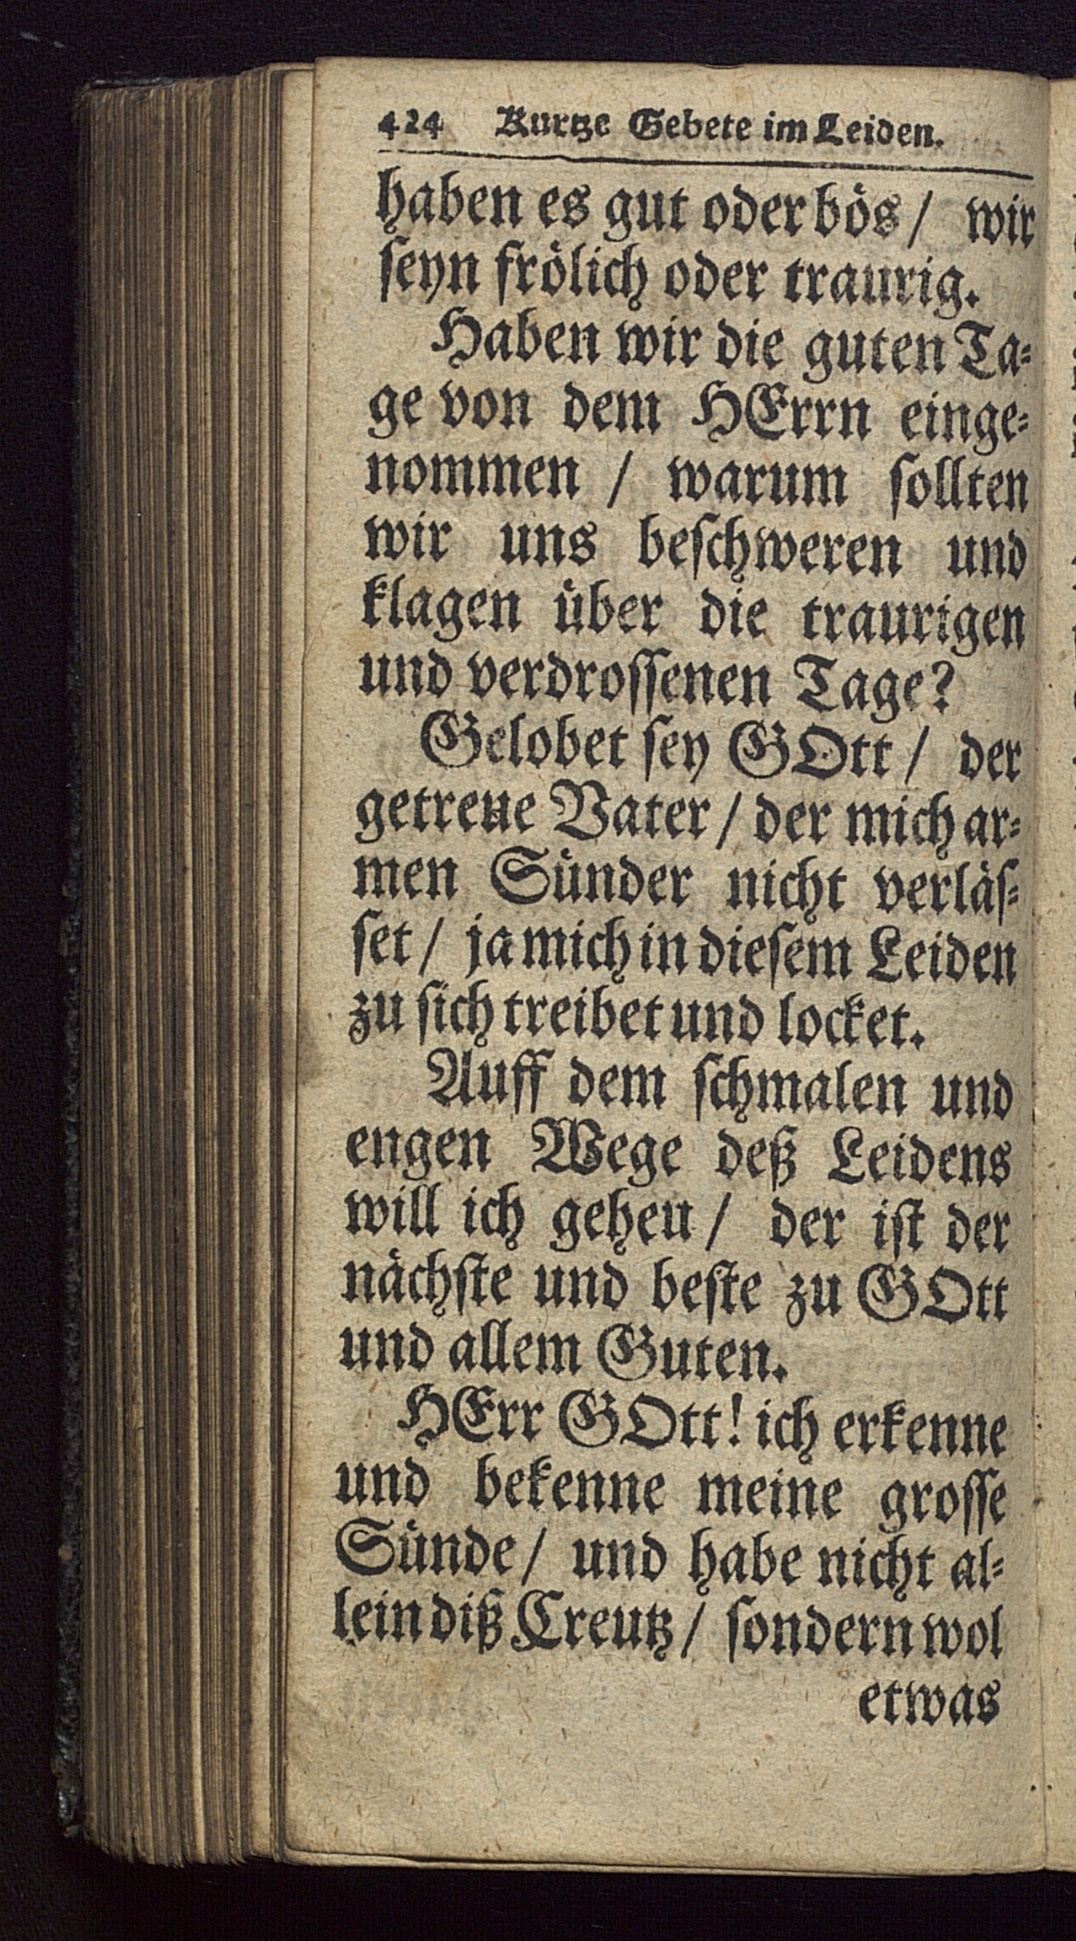 424 Kurtze Gebete im Leiden.
haben es gut oder bös / wir
seyn frölich oder traurig.
Haben wir die guten Ta-
ge von dem HErrn einge-
nommen / warum sollten
wir uns beschweren und
klagen über die traurigen
und verdrossenen Tage?
Gelobet sey GOtt / der
getreue Vater / der mich ar-
men Sünder nicht verläs-
set / ja mich in diesem Leiden
zu sich treibet und locket.
Auff dem schmalen und
engen Wege deß Leidens
will ich gehen / der ist der
nächste und beste zu GOtt
und allem Guten.
HErr GOtt! ich erkenne
und bekenne meine grosse
Sünde / und habe nicht al-
lein diß Creutz / sondern wol
etwas